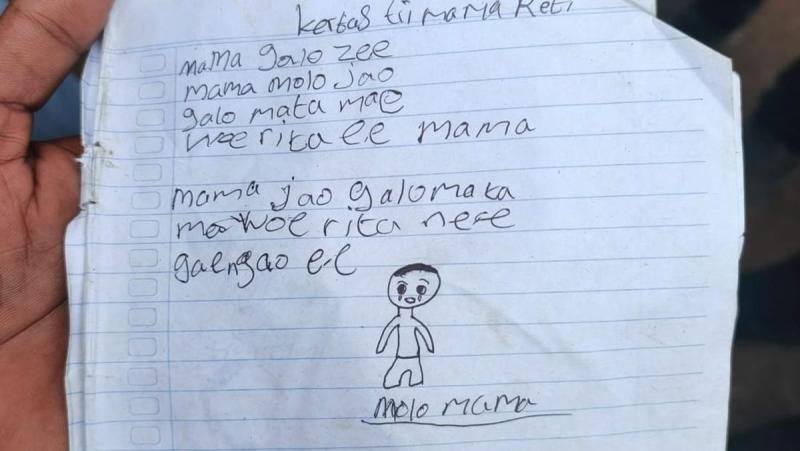 kertas tii mama Reti
mama galo zee
mama molo jao
galo mata mae
woe rita e.e mama
mama jao galo mata
mae woe rita ne-e
gae ngao e-e
molo mama